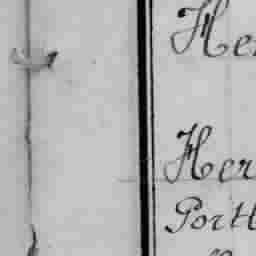 Her
Her
Porth